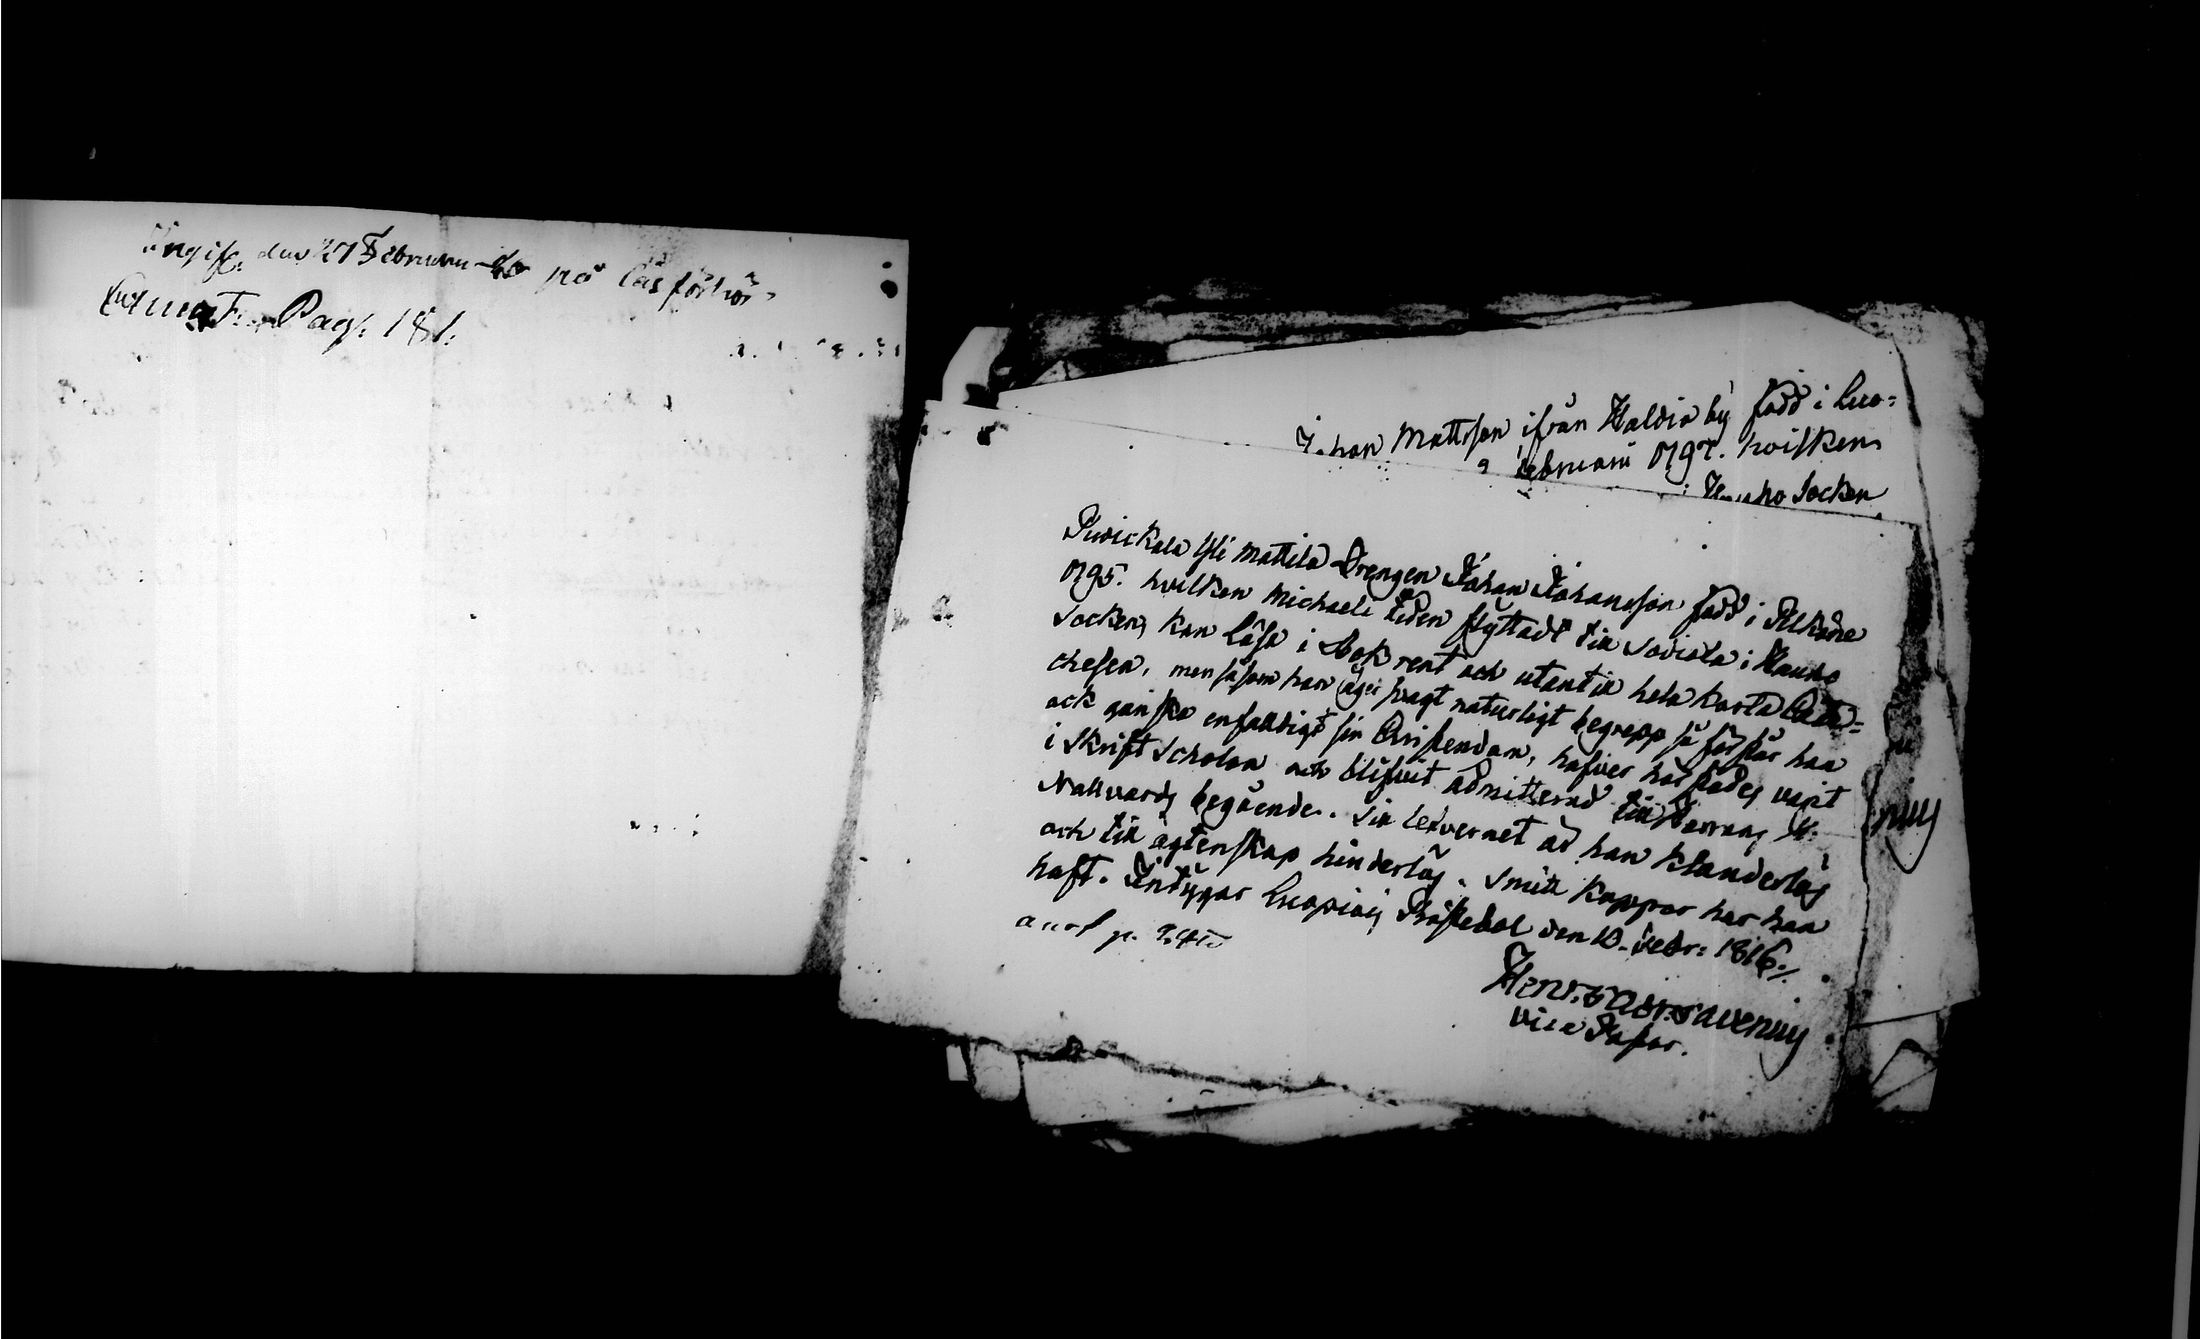 Angifv. den 27 Februarii på läsförhör
Pag. 181.
Johan Mattsson ifrån Haldia by född i Luo=
Februarii 1797. hvilken
Socken
Puickala Yli Mattila Drengen Johan Johansson född i Pelkäne
1795. hvilken Michaeli tiden flyttade till Sodiala i Hauho
Socken, kan läsa i Bok rent och utantill hela korta Cate=
chesen, men såsom han äger svagt naturligt begrepp så förstår han
ock ganska enfaldigt sin Christendom, hafver härstädes varit
i Skrift Scholan och blifvit admitterad till Herrans H.
Nattvards begående. Till lefvernet är han klanderlös
och till ägtenskap hinderlös. Smitt koppor har han
haft. Intygar Luopiois Prästebol den 10. Febr: 1816./.
Vice Pastor.